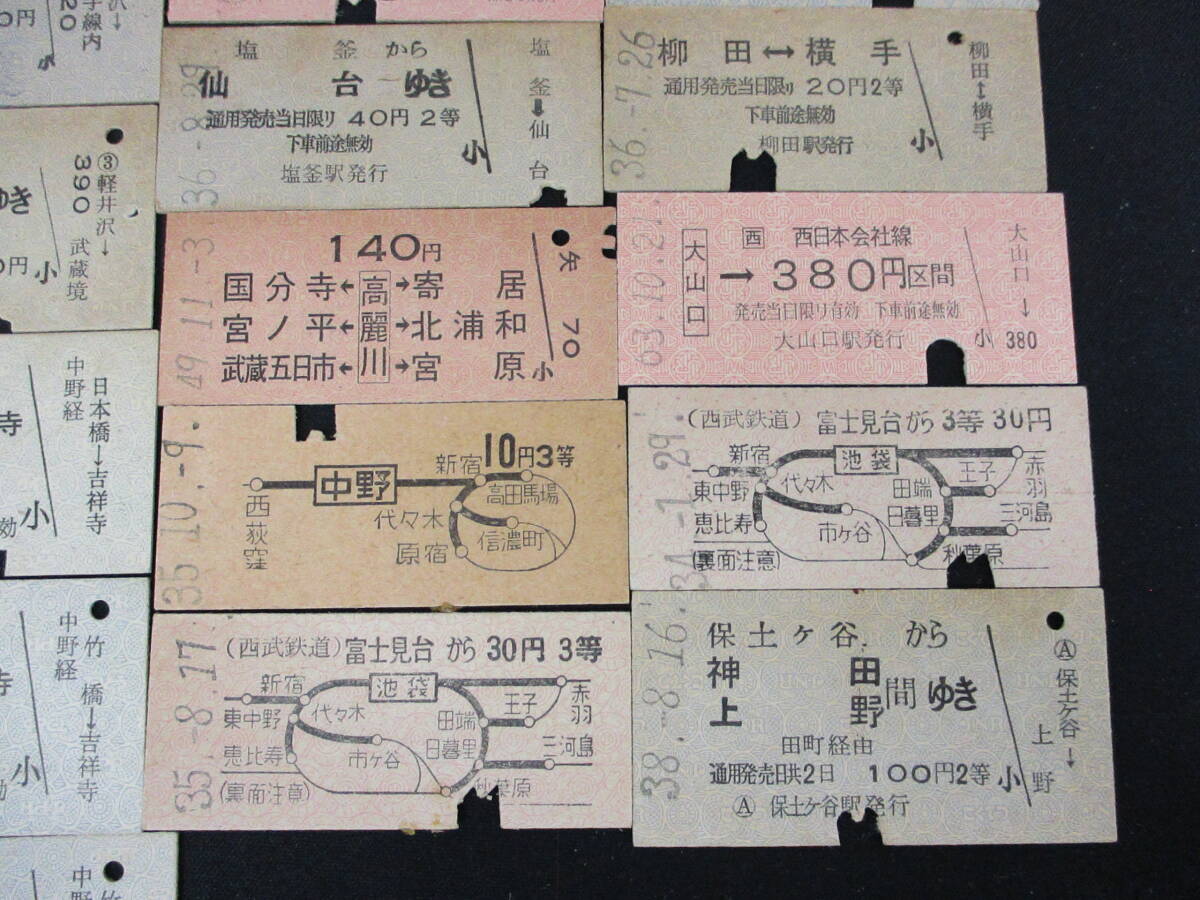 塩釜から
仙台ゆき
通用発売当日限り 40円 2等
下車前途無効
塩釜駅発行
小
塩釜➡仙台
36.-8.29
柳田↔横手
通用発売当日限り 20円2等
下車前途無効
柳田駅発行
小
柳田↔横手
36.-7.26
140円
国分寺←高麗川→寄居
宮ノ平← →北浦和
武蔵五日市← →宮原
小
70
49.11.-3
西 西日本会社線
大山口→380円区間
発売当日限り有効 下車前途無効
大山口駅発行
小 380
大山口→
63.10.21.
10円3等
新宿
中野
高田馬場
西荻窪
代々木
信濃町
原宿
35.10.-9.
(西武鉄道) 富士見台から 3等 30円
新宿
池袋
王子
赤羽
東中野
代々木
田端
恵比寿
市ヶ谷
日暮里
三河島
(裏面注意)
秋葉原
34.-1.29.
(西武鉄道) 富士見台から 30円 3等
新宿
池袋
王子
赤羽
東中野
代々木
田端
恵比寿
市ヶ谷
日暮里
三河島
(裏面注意)
秋葉原
35.-8.17
保土ヶ谷から
神田
上野間ゆき
田町経由
通用発売日共2日 100円2等
Ⓐ 保土ヶ谷駅発行
小
Ⓐ保土ヶ谷→
上野
38.-8.16
③軽井沢→
390 武蔵境
ゆき
小
日本橋→吉祥寺
中野経
寺
効
小
竹橋→吉祥寺
中野経
小